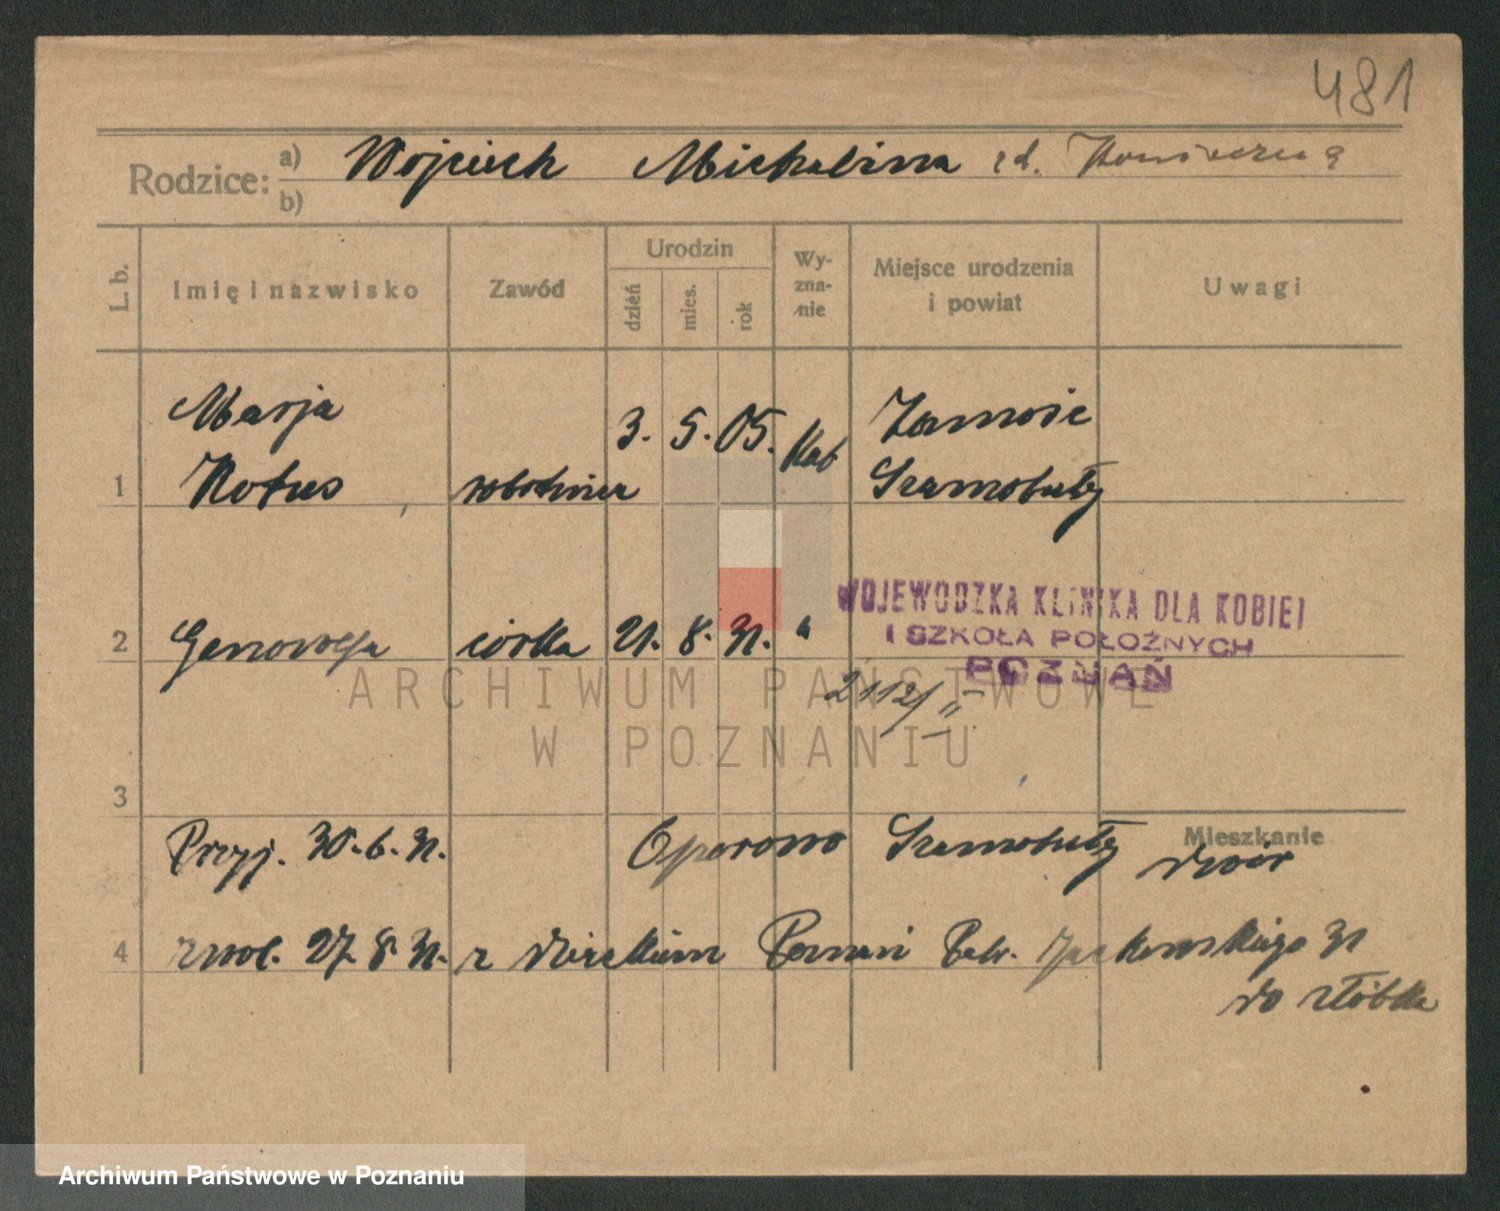 481
Rodzice: a) Wojciech Michalina zd.
b)
L. b. Imię i nazwisko Zawód Urodzin dzień mies. rok Wyzna-nie Miejsce urodzenia i powiat Uwagi
Marja 3. 5. 05. Kat Zamość
1 Kotus, robotnica Szamotuły
WOJEWÓDZKA KLINIKA DLA KOBIET
I SZKOŁA POŁOŻNYCH
POZNAŃ
2 Genowefa córka 21. 8. 31. "
2112/II
ARCHIWUM PAŃSTWOWE
W POZNANIU
3
Mieszkanie
Przyj. 30. 6. 31. Oporowo Szamotuły dwór
4 zwol. 27. 8. 31. z dzieckiem Poznań Patr. Jackowskiego 31
do żłóbka
Archiwum Państwowe w Poznaniu